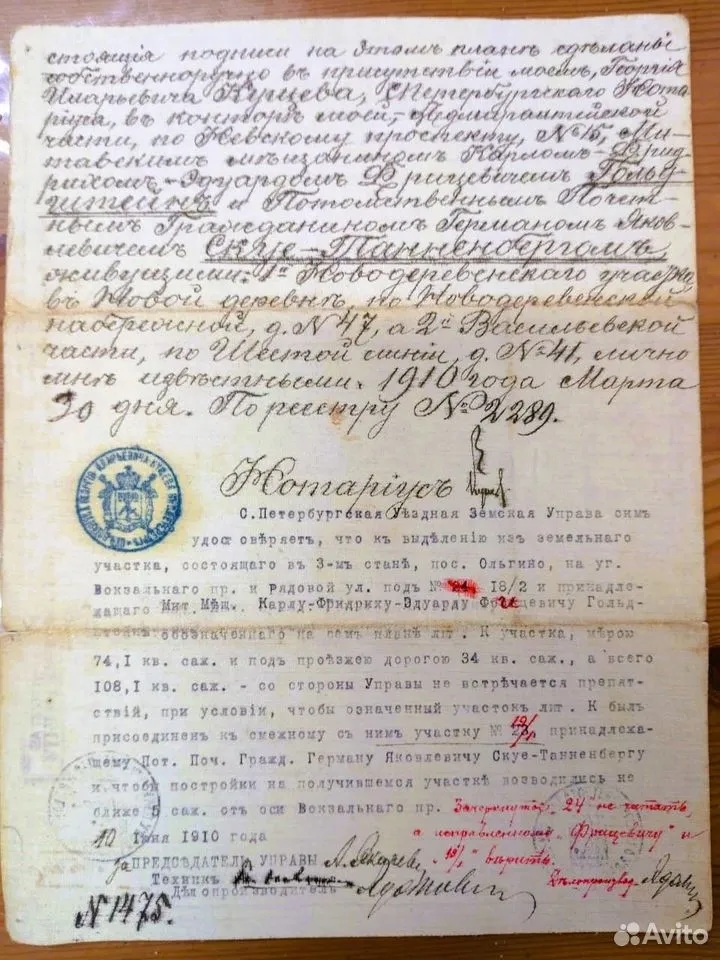 стоящія подписи на этомъ планѣ сдѣланы
собственноручно въ присутствіи моемъ, Георгія
Иларьевича Куцева, С.Петербургскаго Нота
ріуса, въ конторѣ моей, Адмиралтейской
части, по Невскому проспекту, № 15, Ми-
тавскимъ мѣщаниномъ Карломъ-Фрид
рихомъ-Эдуардомъ Фрицевичемъ Гольд
штейнъ и Потомственнымъ Почет-
нымъ Гражданиномъ Германомъ Яков
левичемъ Скуе-Танненбергомъ,
живущими: 1й Новодеревенскаго участка,
въ Новой деревнѣ, по Новодеревенской
набережной, д. № 47, а 2й Васильевской
части, по Шестой линіи, д. № 41, лично
мнѣ извѣстными. 1910 года Марта
30 дня. По реестру № 2289.
Нотаріусъ
С.Петербургская Уѣздная Земская Управа симъ
удостовѣряетъ, что къ выдѣленію изъ земельнаго
участка, состоящаго въ 3-мъ станѣ, пос. Ольгино, на уг.
Вокзальнаго пр. и Рядовой ул. подъ № 24 18/2 и принадле-
жащаго Мит. Мѣщ. Карлу-Фридриху-Эдуарду Фрицевичу Гольд-
штейнъ обозначеннаго на семъ планѣ лит. К участка, мѣрою
74,I кв. саж. и подъ проѣзжею дорогою 34 кв. саж., а всего
I08,I кв. саж. - со стороны Управы не встрѣчается препят-
ствій, при условіи, чтобы означенный участокъ лит. К былъ
присоединенъ къ смежному съ нимъ участку № 19/1 принадлежа-
щему Пот. Поч. Гражд. Герману Яковлевичу Скуе-Танненбергу
и чтобы постройки на получившемся участкѣ возводились не
ближе 5 саж. отъ оси Вокзальнаго пр. Зачеркнутое 24 не читать,
а исправленному „Фрицевичу" и
10 Іюня 1910 года
„19/1" вѣрить.
за ПРЕДСѢДАТЕЛЯ УПРАВЫ
Техникъ
Дѣлопроизвод.
Дѣлопроизводитель
№ 1475.
Avito